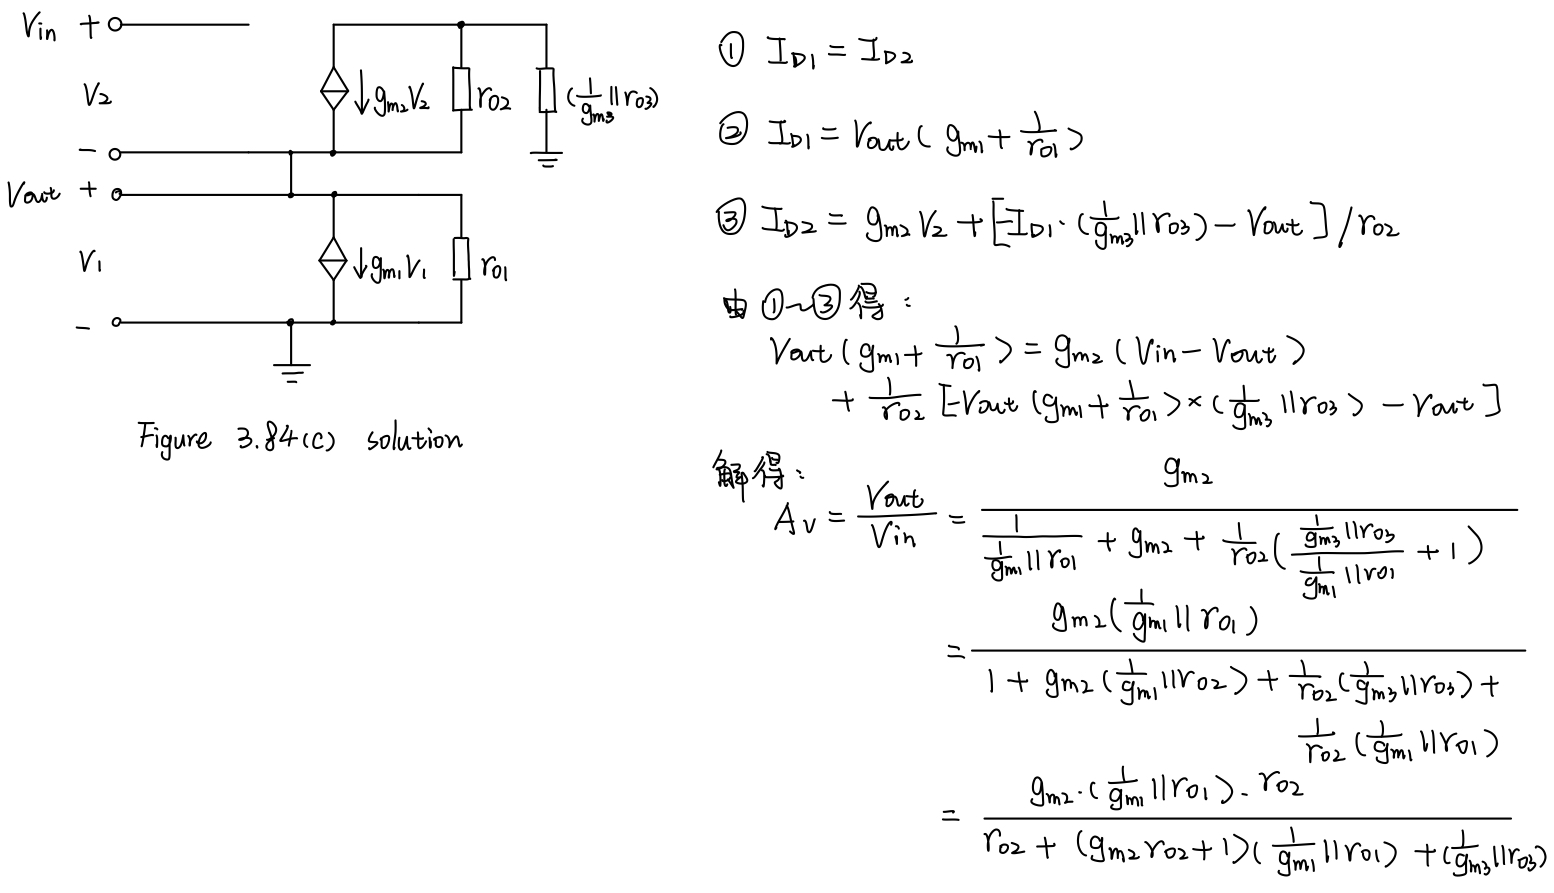 Vin +
V2
-
gm2V2
ro2
(1/gm3 || ro3)
Vout +
V1
-
gm1V1
ro1
Figure 3.84(c) solution
① ID1 = ID2
② ID1 = Vout ( gm1 + 1/ro1 )
③ ID2 = gm2 V2 + [-ID1 · (1/gm3 || ro3) - Vout ] / ro2
由 ①~③ 得 :
Vout ( gm1 + 1/ro1 ) = gm2 ( Vin - Vout )
+ 1/ro2 [-Vout (gm1 + 1/ro1) × (1/gm3 || ro3) - Vout ]
解得 :
Av = Vout/Vin = gm2 / ( 1/(1/gm1 || ro1) + gm2 + 1/ro2 ( (1/gm3 || ro3)/(1/gm1 || ro1) + 1 ) )
= gm2 (1/gm1 || ro1) / ( 1 + gm2 (1/gm1 || ro2) + 1/ro2 (1/gm3 || ro3) +
1/ro2 (1/gm1 || ro1) )
= gm2 · (1/gm1 || ro1) · ro2 / ( ro2 + (gm2 ro2 + 1)(1/gm1 || ro1) + (1/gm3 || ro3) )